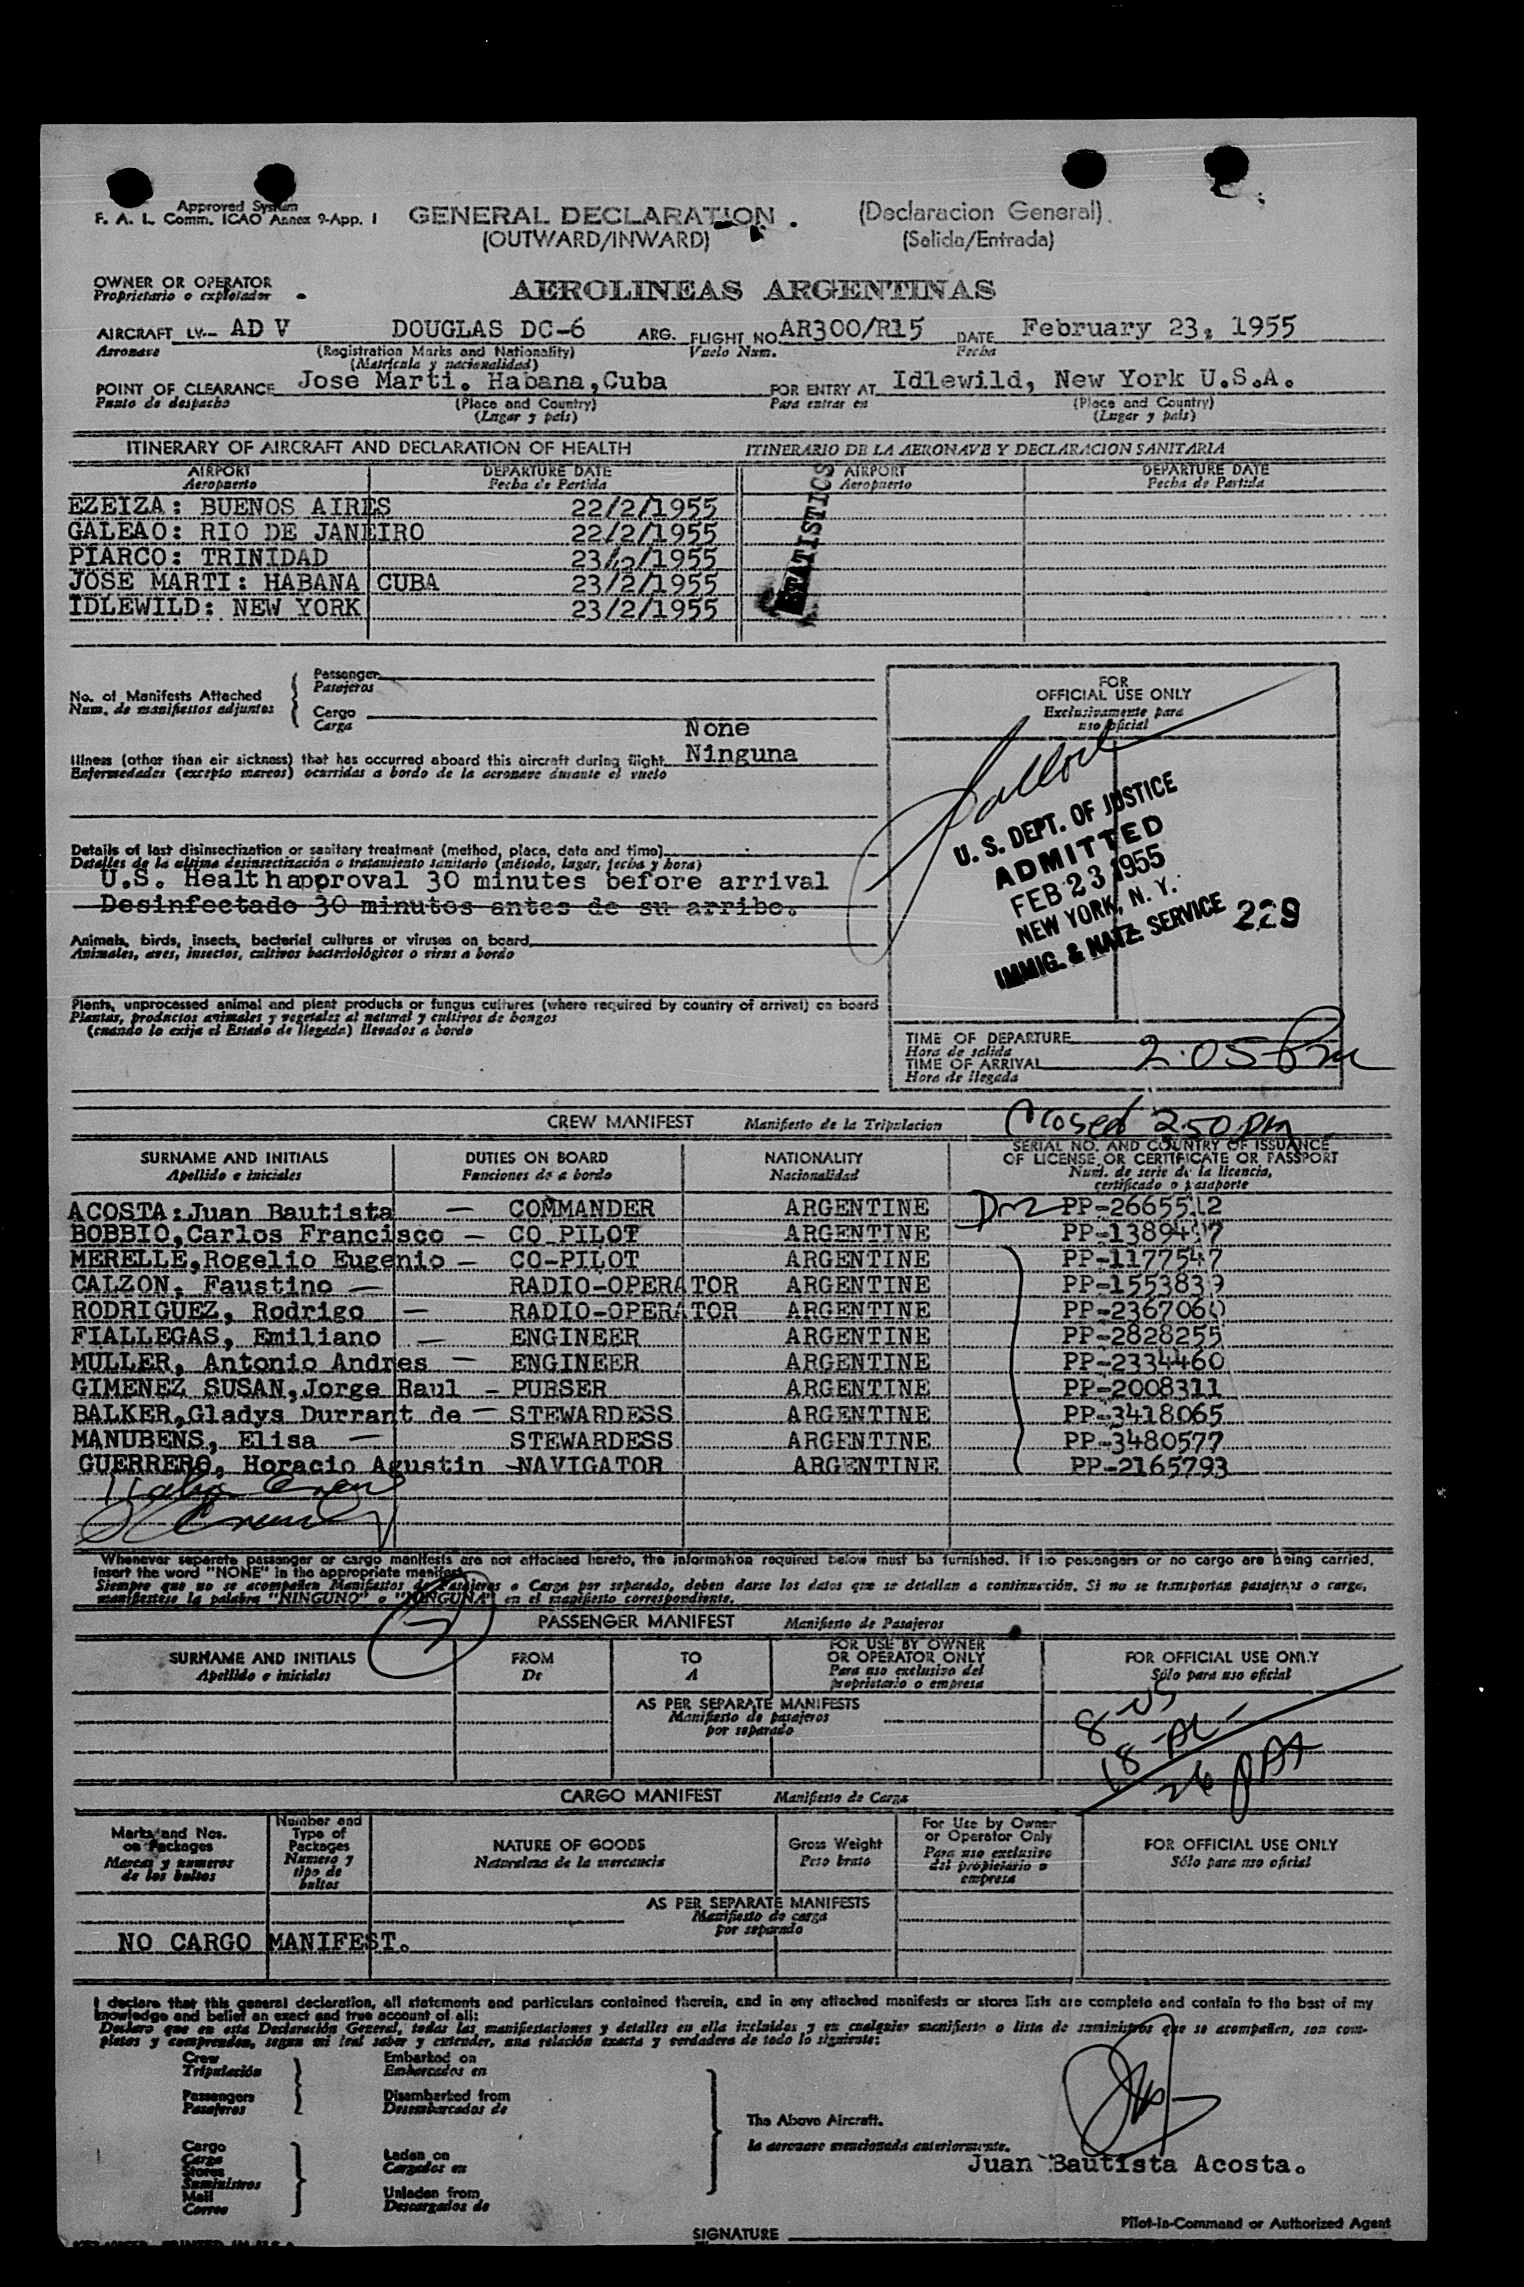 Approved System
F. A. L. Comm. ICAO Annex 9-App. 1
GENERAL DECLARATION
(Declaracion General).
(OUTWARD/INWARD)
(Salida/Entrada)
OWNER OR OPERATOR
Propietario o explotador
AEROLINEAS ARGENTINAS
AIRCRAFT LV- AD V DOUGLAS DC-6 ARG. FLIGHT NO. AR300/R15 DATE February 23, 1955
Aeronave (Registration Marks and Nationality) Vuelo Num. Fecha
(Matrícula y nacionalidad)
POINT OF CLEARANCE Jose Marti. Habana,Cuba FOR ENTRY AT Idlewild, New York U.S.A.
Punto de despacho (Place and Country) Para entrar en (Place and Country)
(Lugar y país) (Lugar y país)
ITINERARY OF AIRCRAFT AND DECLARATION OF HEALTH ITINERARIO DE LA AERONAVE Y DECLARACION SANITARIA
AIRPORT DEPARTURE DATE AIRPORT DEPARTURE DATE
Aeropuerto Fecha de Partida Aeropuerto Fecha de Partida
EZEIZA: BUENOS AIRES 22/2/1955
GALEAO: RIO DE JANEIRO 22/2/1955
PIARCO: TRINIDAD 23/2/1955
JOSE MARTI: HABANA CUBA 23/2/1955
IDLEWILD: NEW YORK 23/2/1955
STATISTICS
No. of Manifests Attached
Num. de manifiestos adjuntos
Passenger
Pasajeros
Cargo
Carga
None
Illness (other than air sickness) that has occurred aboard this aircraft during flight Ninguna
Enfermedades (excepto mareos) ocurridas a bordo de la aeronave durante el vuelo
Details of last disinsectization or sanitary treatment (method, place, date and time)
Detalles de la ultima desinsectización o tratamiento sanitario (método, lugar, fecha y hora)
U.S. Health approval 30 minutes before arrival
Desinfectado 30 minutos antes de su arribo.
Animals, birds, insects, bacterial cultures or viruses on board
Animales, aves, insectos, cultivos bacteriológicos o virus a bordo
Plants, unprocessed animal and plant products or fungus cultures (where required by country of arrival) on board
Plantas, productos animales y vegetales al natural y cultivos de hongos
(cuando lo exija el Estado de llegada) llevados a bordo
FOR
OFFICIAL USE ONLY
Exclusivamente para
uso oficial
U. S. DEPT. OF JUSTICE
ADMITTED
FEB 23 1955
NEW YORK, N. Y.
IMMIG. & NATZ. SERVICE 229
TIME OF DEPARTURE
Hora de salida
TIME OF ARRIVAL 2.05 Pm
Hora de llegada
CREW MANIFEST Manifiesto de la Tripulacion Closed 250 pm
SURNAME AND INITIALS DUTIES ON BOARD NATIONALITY SERIAL NO. AND COUNTRY OF ISSUANCE
OF LICENSE OR CERTIFICATE OR PASSPORT
Apellido e iniciales Funciones de a bordo Nacionalidad Num. de serie de la licencia,
certificado o pasaporte
ACOSTA:Juan Bautista — COMMANDER ARGENTINE PP-2665512
BOBBIO,Carlos Francisco — CO PILOT ARGENTINE PP-1389497
MERELLE,Rogelio Eugenio — CO-PILOT ARGENTINE PP-1177547
CALZON, Faustino — RADIO-OPERATOR ARGENTINE PP-1553839
RODRIGUEZ, Rodrigo — RADIO-OPERATOR ARGENTINE PP-2367060
FIALLEGAS, Emiliano — ENGINEER ARGENTINE PP-2828255
MULLER, Antonio Andres — ENGINEER ARGENTINE PP-2334460
GIMENEZ SUSAN,Jorge Raul — PURSER ARGENTINE PP-2008311
BALKER,Gladys Durrant de — STEWARDESS ARGENTINE PP-3418065
MANUBENS, Elisa — STEWARDESS ARGENTINE PP-3480577
GUERRERO, Horacio Agustin — NAVIGATOR ARGENTINE PP-2165793
Whenever separate passenger or cargo manifests are not attached hereto, the information required below must be furnished. If no passengers or no cargo are being carried,
insert the word "NONE" in the appropriate manifest.
Siempre que no se acompañen Manifiestos de Pasajeros o Carga por separado, deben darse los datos que se detallan a continuación. Si no se transportan pasajeros o carga,
manifiestese la palabra "NINGUNO" o "NINGUNA" en el manifiesto correspondiente.
PASSENGER MANIFEST Manifiesto de Pasajeros
SURNAME AND INITIALS FROM TO FOR USE BY OWNER
OR OPERATOR ONLY FOR OFFICIAL USE ONLY
Apellido e iniciales De A Para uso exclusivo del
propietario o empresa Sólo para uso oficial
AS PER SEPARATE MANIFESTS
Manifiesto de pasajeros
por separado
8 US
18 AL
26
CARGO MANIFEST Manifiesto de Carga
Marks and Nos.
on Packages
Marcas y numeros
de los bultos
Number and
Type of
Packages
Numero y
tipo de
bultos
NATURE OF GOODS
Naturaleza de la mercancia
Gross Weight
Peso bruto
For Use by Owner
or Operator Only
Para uso exclusivo
del propietario o
empresa
FOR OFFICIAL USE ONLY
Sólo para uso oficial
AS PER SEPARATE MANIFESTS
Manifiesto de carga
por separado
NO CARGO MANIFEST.
I declare that this general declaration, all statements and particulars contained therein, and in any attached manifests or stores lists are complete and contain to the best of my
knowledge and belief an exact and true account of all:
Declaro que en esta Declaración General, todas las manifestaciones y detalles en ella incluidos y en cualquier manifiesto o lista de suministros que se acompañen, son com-
pletos y comprenden, segun mi leal saber y entender, una relación exacta y verdadera de todo lo siguiente:
Crew Embarked on
Tripulación Embarcados en
Passengers Disembarked from
Pasajeros Desembarcados de
The Above Aircraft.
la aeronave mencionada anteriormente.
Cargo
Carga
Stores
Suministros
Mail
Correo
Laden on
Cargados en
Unladen from
Descargados de
Juan Bautista Acosta.
SIGNATURE
Pilot-in-Command or Authorized Agent